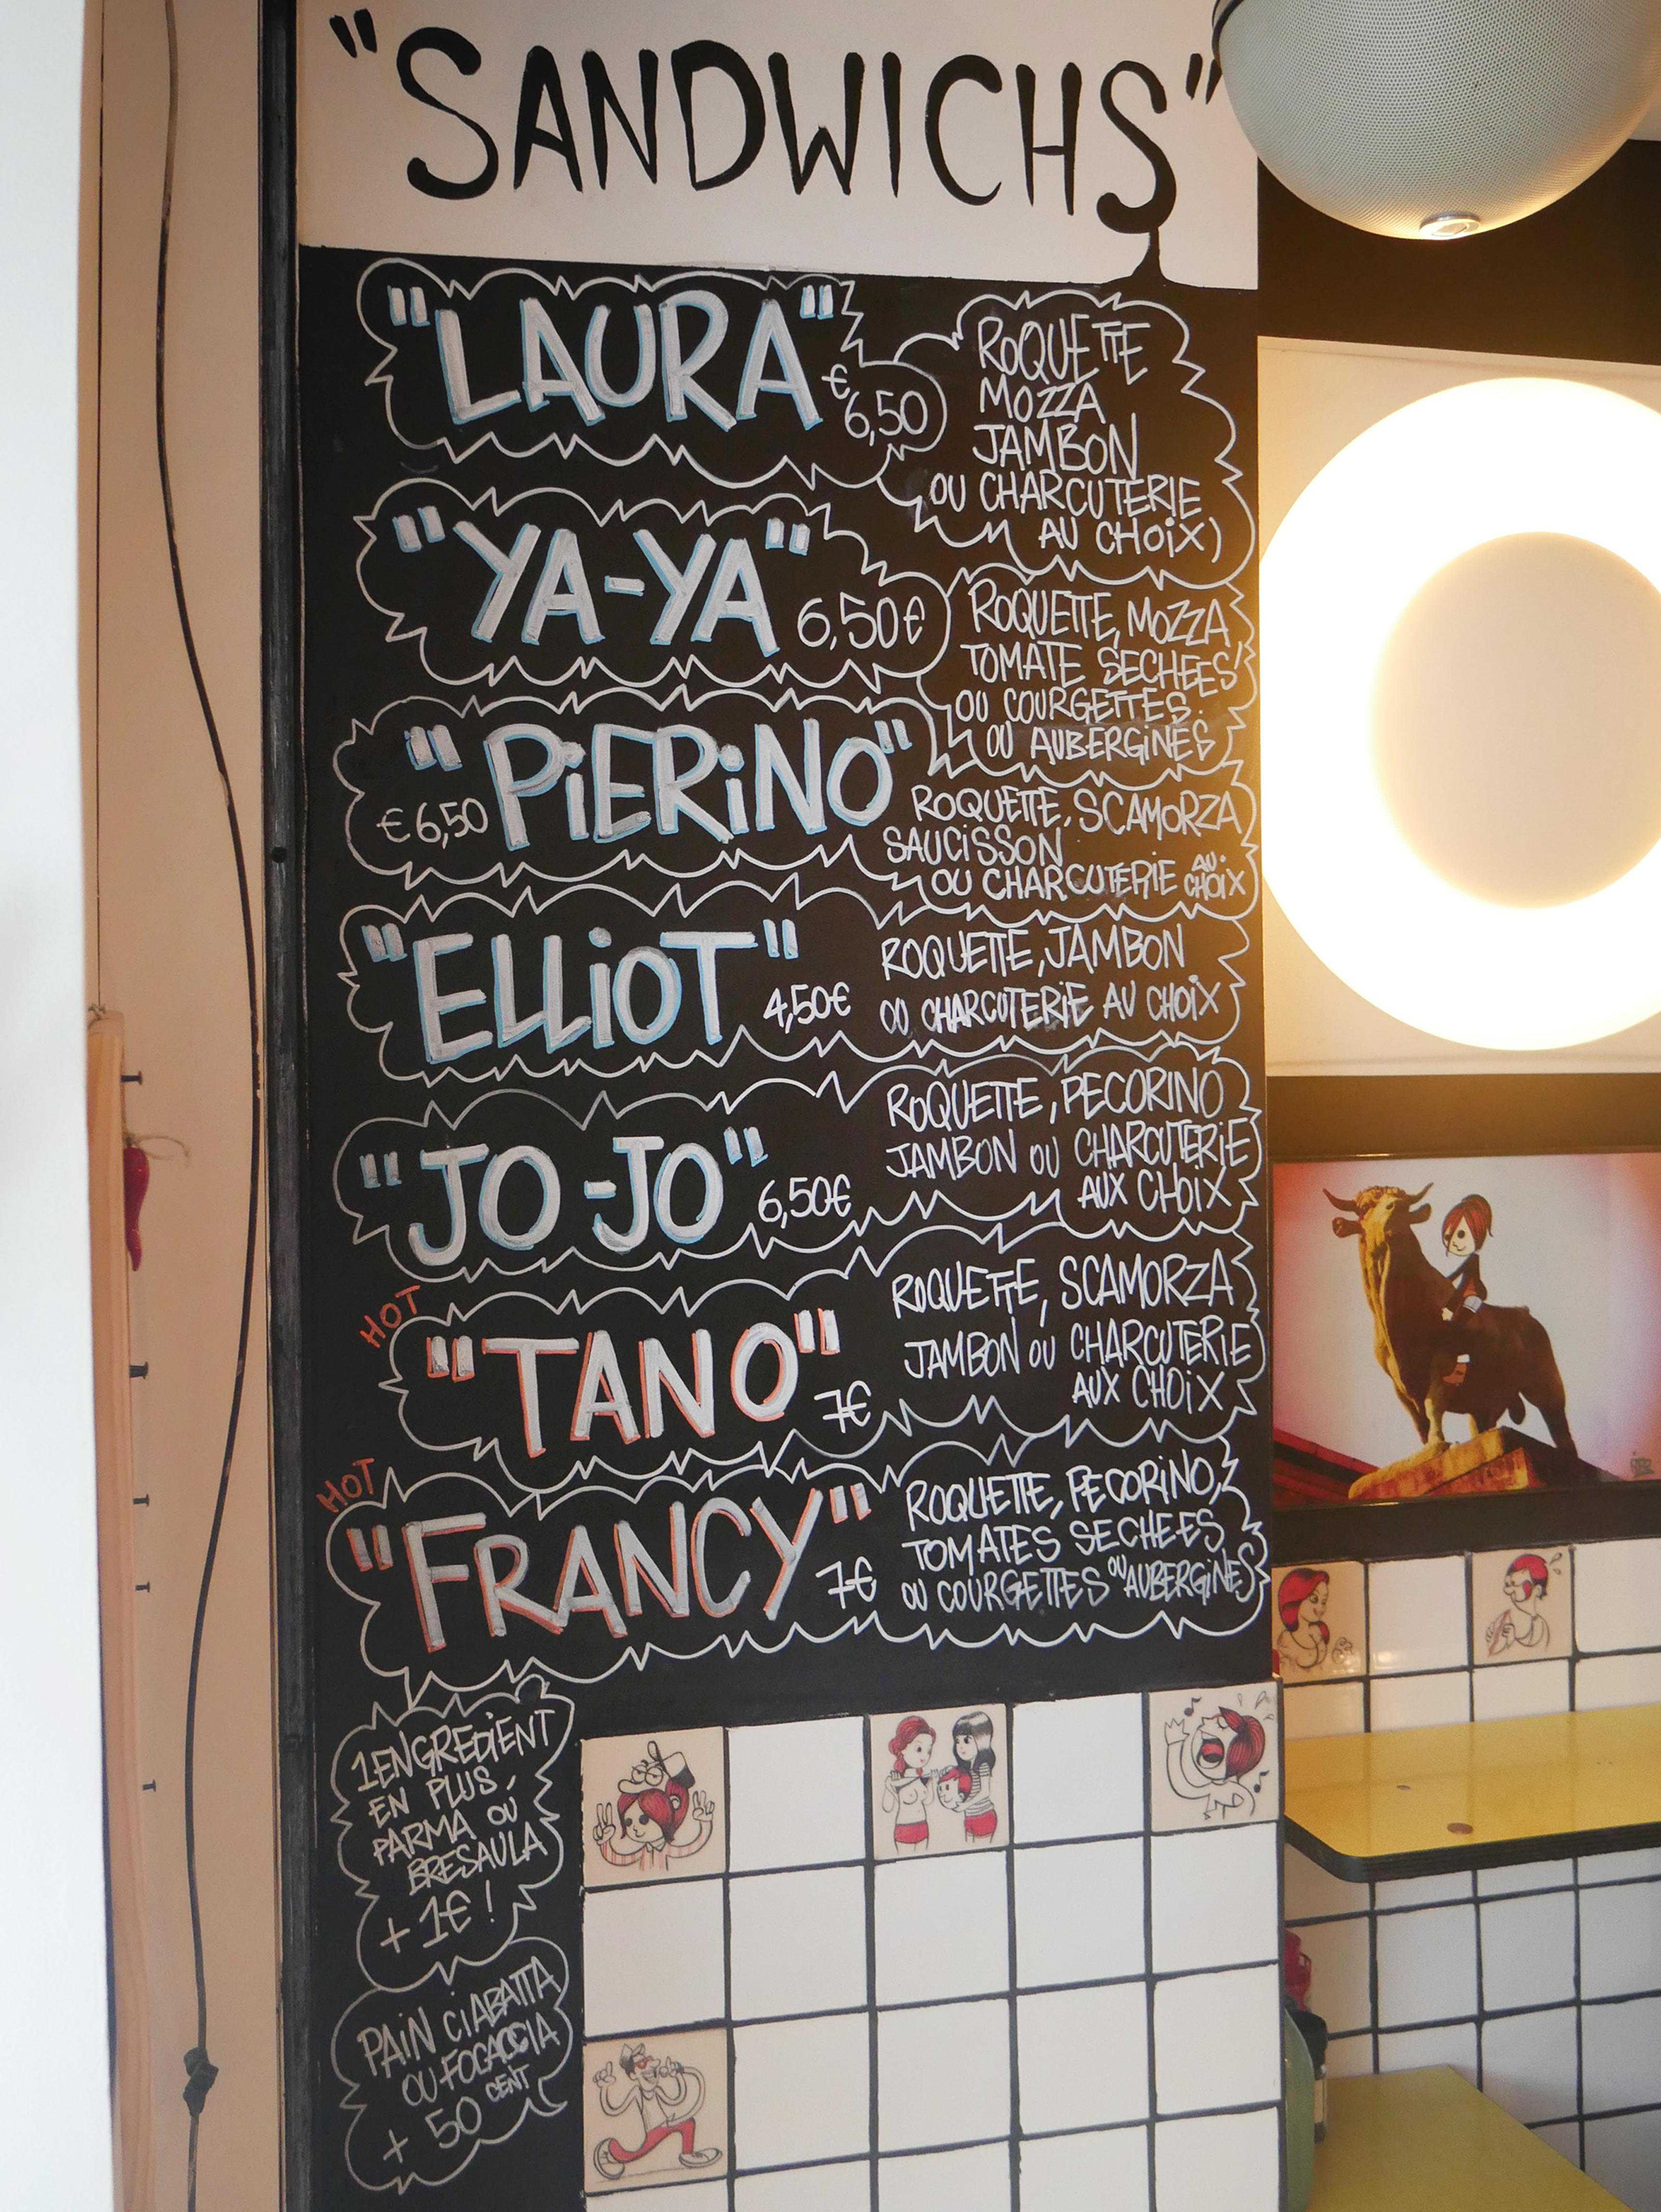 "SANDWICHS"
"LAURA"
€
6,50
ROQUETTE
MOZZA
JAMBON
OU CHARCUTERIE
AU CHOIX)
"YA-YA"
6,50€
ROQUETTE, MOZZA
TOMATE SECHEES
OU COURGETTES.
OU AUBERGINES
"PiERiNO"
€6,50
ROQUETTE, SCAMORZA
SAUCISSON
OU CHARCUTERIE AU CHOIX
"ELLiOT"
4,50€
ROQUETTE, JAMBON
OU CHARCUTERIE AU CHOIX
"JO-JO"
6,50€
ROQUETTE, PECORINO
JAMBON OU CHARCUTERIE
AUX CHOIX
HOT
"TANO"
7€
ROQUETTE, SCAMORZA
JAMBON OU CHARCUTERIE
AUX CHOIX
HOT
"FRANCY"
7€
ROQUETTE, PECORINO,
TOMATES SECHEES
OU COURGETTES OU AUBERGINES
1 ENGREDIENT
EN PLUS,
PARMA OU
BRESAULA
+ 1€ !
PAIN CIABATTA
OU FOCACCIA
+ 50 CENT